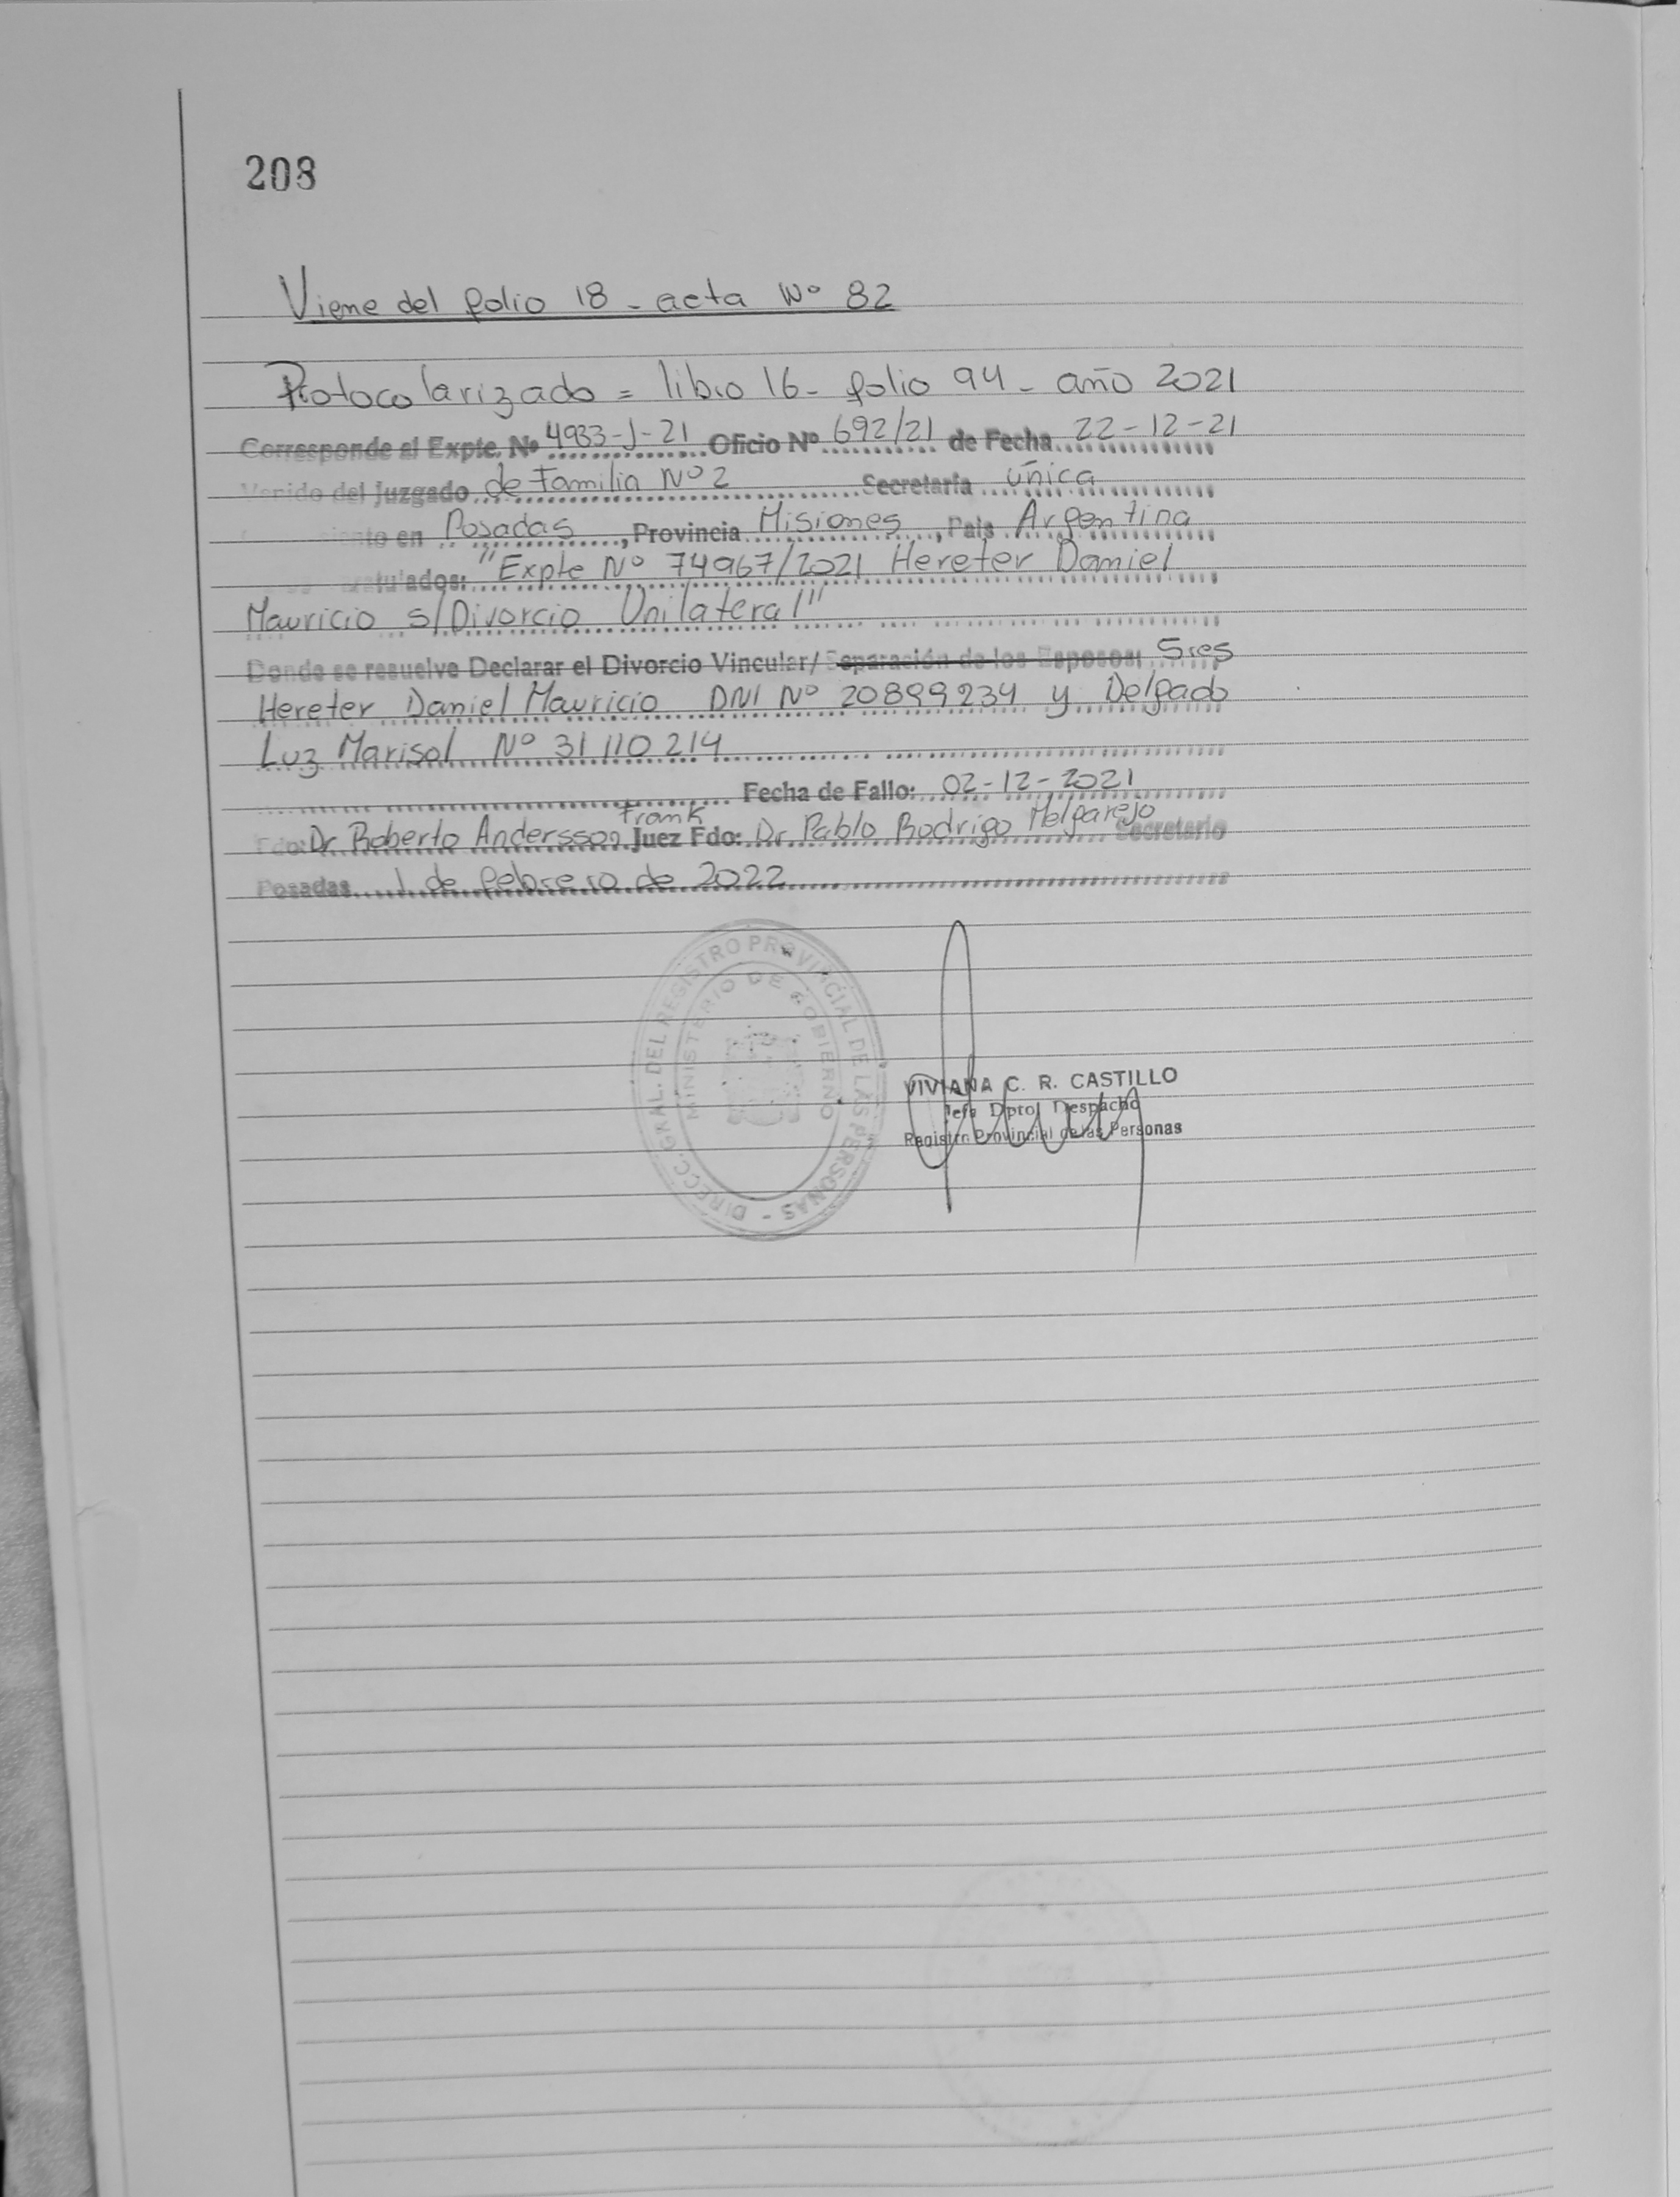 208
Viene del folio 18 - acta Nº 82
Protocolarizado = libro 16 - folio 94 - año 2021
Corresponde al Expte. Nº 4933-J-21 Oficio Nº 692/21 de Fecha 22-12-21
Venido del Juzgado de Familia Nº 2 Secretaría única
en Posadas, Provincia Misiones, País Argentina
"Expte Nº 74967/2021 Hereter Daniel
Mauricio s/Divorcio Unilateral"
Donde se resuelve Declarar el Divorcio Vincular/ Separación de los Esposos: Sres
Hereter Daniel Mauricio DNI Nº 20899234 y Delgado
Luz Marisol Nº 31110214
Fecha de Fallo: 02-12-2021
Fdo: Dr. Roberto Andersson Frank Juez Fdo: Dr. Pablo Rodrigo Melgarejo Secretario
Posadas 1 de febrero de 2022
DIRECC. GRAL. DEL REGISTRO PROVINCIAL DE LAS PERSONAS -
MINISTERIO DE GOBIERNO
VIVIANA C. R. CASTILLO
Jefa Dpto Despacho
Registro Provincial de las Personas